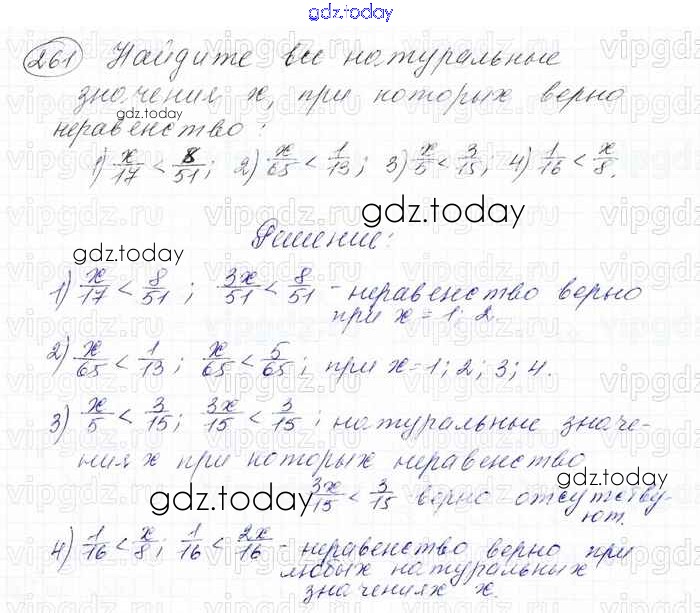 gdz.today
261 Найдите все натуральные
значения x, при которых верно
gdz.today
неравенство:
1) x/17 < 8/51; 2) x/65 < 1/13; 3) x/5 < 3/15; 4) 1/16 < x/8.
gdz.today
Решение:
gdz.today
1) x/17 < 8/51; 3x/51 < 8/51 - неравенство верно
при x = 1; 2.
2) x/65 < 1/13; x/65 < 5/65; при x = 1; 2; 3; 4.
3) x/5 < 3/15; 3x/15 < 3/15; натуральные значе-
ния x при которых неравенство
gdz.today
3x/15 < 3/15 верно отсутству-
ют.
gdz.today
4) 1/16 < x/8; 1/16 < 2x/16 - неравенство верно при
любых натуральных
значениях x.